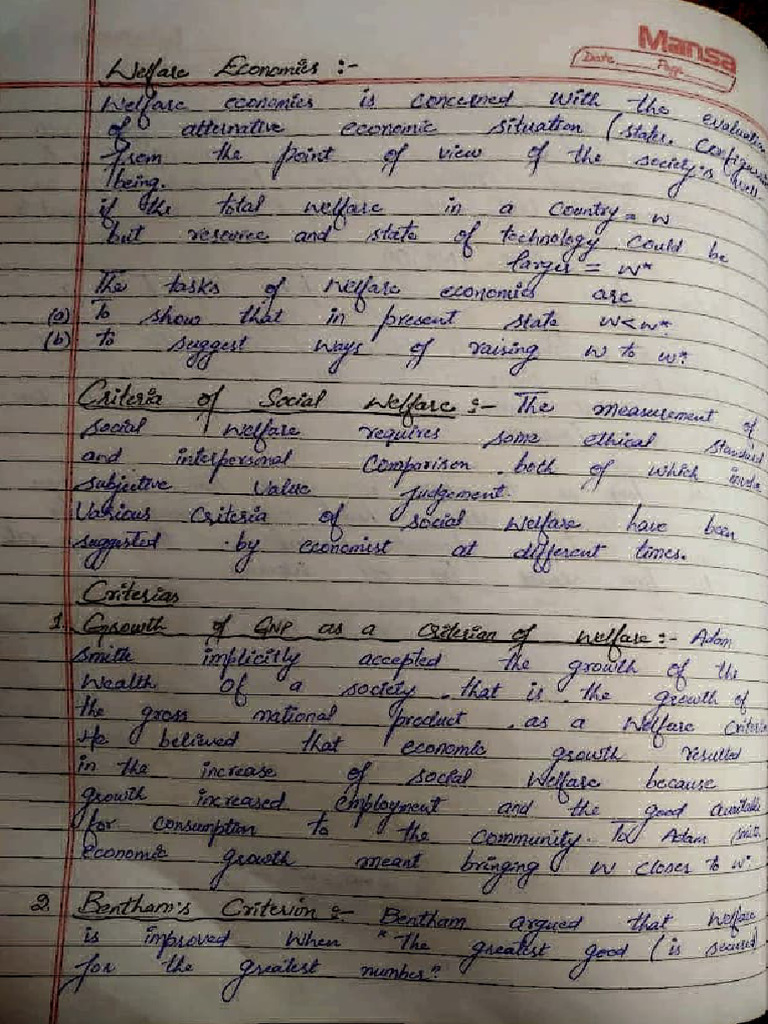 Mansa
Date Page
Welfare Economics :-
Welfare economics is concerned with the
of alternative economic situation (states.
from the point of view of the society's well-
being.
if the total welfare in a country = w
but resource and state of technology could be
larger = w*
The tasks of welfare economics are
(a) To show that in present state w<w*.
(b) to suggest ways of raising w to w*.
Criteria of Social welfare :- The measurement of
social welfare requires some ethical standard
and interpersonal comparison. both of which
subjective value judgement.
Various criteria of social welfare have been
suggested by economist at different times.
Criterias
1. Growth of GNP as a criterion of welfare :- Adam
Smith implicitly accepted the growth of the
wealth of a society. that is the growth of
the gross national product. as a welfare
He believed that economic growth resulted
in the increase of social welfare because
growth increased employment and the good
for consumption to the community. To Adam
economic growth meant bringing w closer to w*.
2 Bentham's Criterion :- Bentham argued that welfare
is improved when "the greatest good (is secured
for the greatest number".